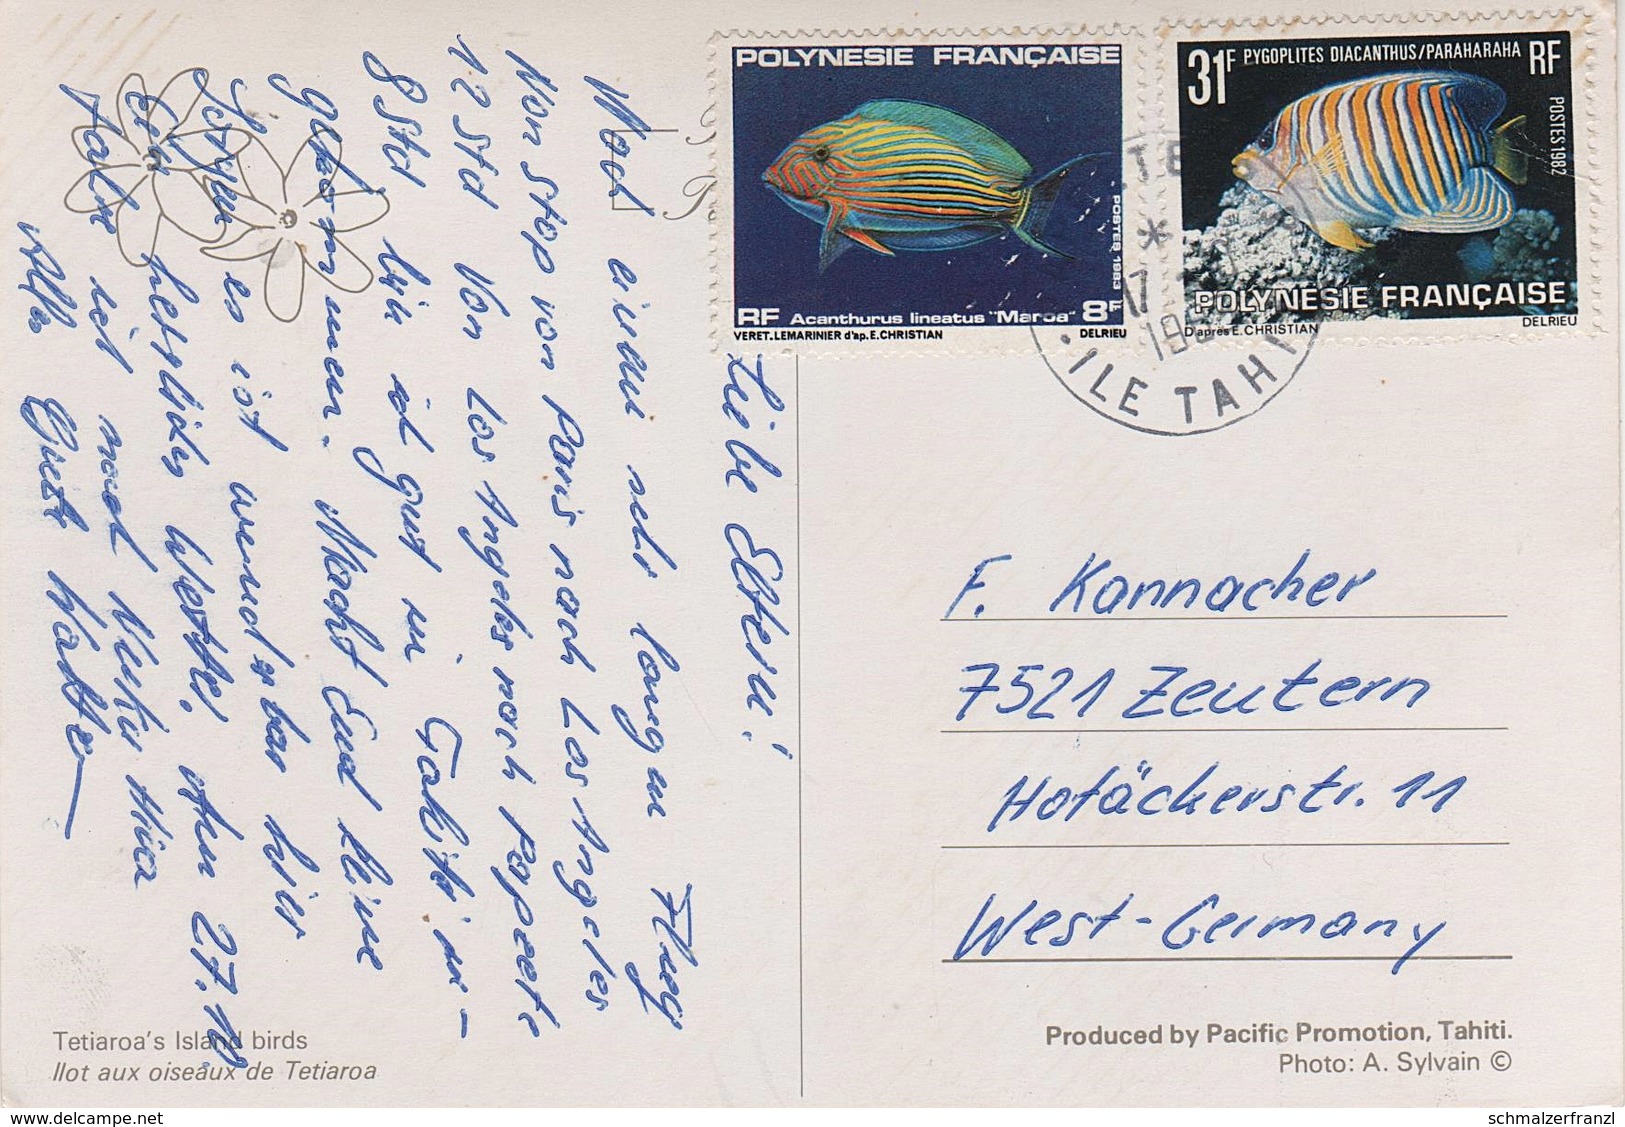 POLYNESIE FRANÇAISE
RF Acanthurus lineatus "Maroa" 8F
POSTES 1983
VERET.LEMARINIER d'ap.E.CHRISTIAN DELRIEU
31F PYGOPLITES DIACANTHUS/PARAHARAHA RF
POSTES 1982
POLYNESIE FRANÇAISE
D'après E.CHRISTIAN DELRIEU
17
ILE TAHITI
Liebe Eltern!
Nach einem sehr langen Flug
Non Stop von Paris nach Los Angeles
12 Std Von Los Angeles nach Papeete
8 Std bin ich gut in Tahiti an-
gekommen. Macht Euch keine
Sorgen es ist wunderbar hier
herrliches Wetter. Am 27.10
fahre ich nach Nuku Hiva
Alles Gute Walter
F. Kannacher
7521 Zeutern
Hofäckerstr. 11
West-Germany
Tetiaroa's Island birds
Ilot aux oiseaux de Tetiaroa
Produced by Pacific Promotion, Tahiti.
Photo: A. Sylvain ©
schmalzerfranzl